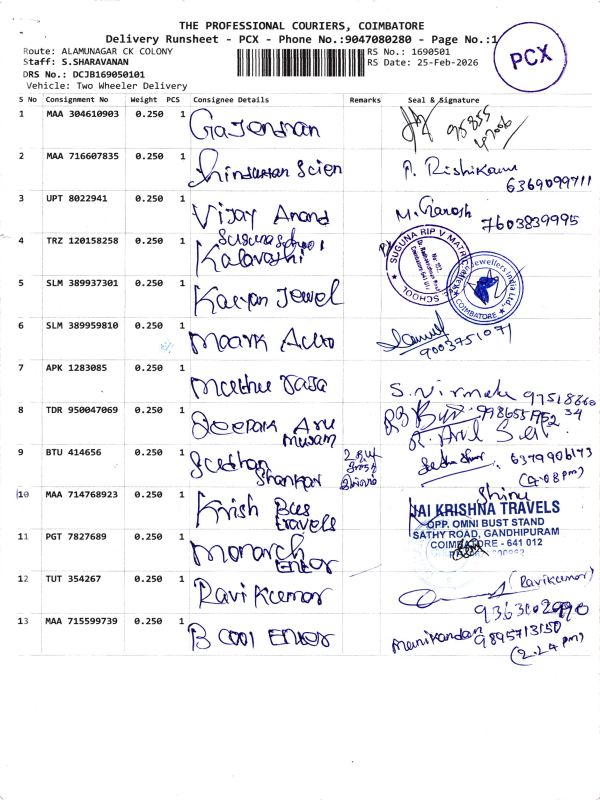 THE PROFESSIONAL COURIERS, COIMBATORE
Delivery Runsheet - PCX - Phone No.:9047080280 - Page No.:1
PCX
Route: ALAMUNAGAR CK COLONY
RS No.: 1690501
Staff: S.SHARAVANAN
RS Date: 25-Feb-2026
DRS No.: DCJB169050101
Vehicle: Two Wheeler Delivery
S No Consignment No Weight PCS Consignee Details Remarks Seal & Signature
1 MAA 304610903 0.250 1 Gajendran
2 MAA 716607835 0.250 1 Hindustan Scien P. Rishikanu
6369099711
3 UPT 8022941 0.250 1 Vijay Anand M. Ganesh 7603839995
4 TRZ 120158258 0.250 1 Suguna School
Kalavathi
SUGUNA RIP V MATRIC SCHOOL
Jewellers India Ltd.
COIMBATORE
5 SLM 389937301 0.250 1 Kalyan Jewel
6 SLM 389959810 0.250 1 Maark Auto
9003751071
7 APK 1283085 0.250 1 Muthu Raja S. Nirmala 97518860
34
8 TDR 950047069 0.250 1 Deepak Aru
Murgam
9 BTU 414656 0.250 1 Suthan
Shankar
6379906173
(4.08 pm)
10 MAA 714768923 0.250 1 Krish Bus
travels
Shinu
JAI KRISHNA TRAVELS
OPP. OMNI BUST STAND
SATHY ROAD, GANDHIPURAM
COIMBATORE - 641 012
11 PGT 7827689 0.250 1 Monarch
Enter
12 TUT 354267 0.250 1 Ravi Kumar (Ravikumar)
9363102990
13 MAA 715599739 0.250 1 B Cool Enter Manikandan 9895713150
(2.24 pm)